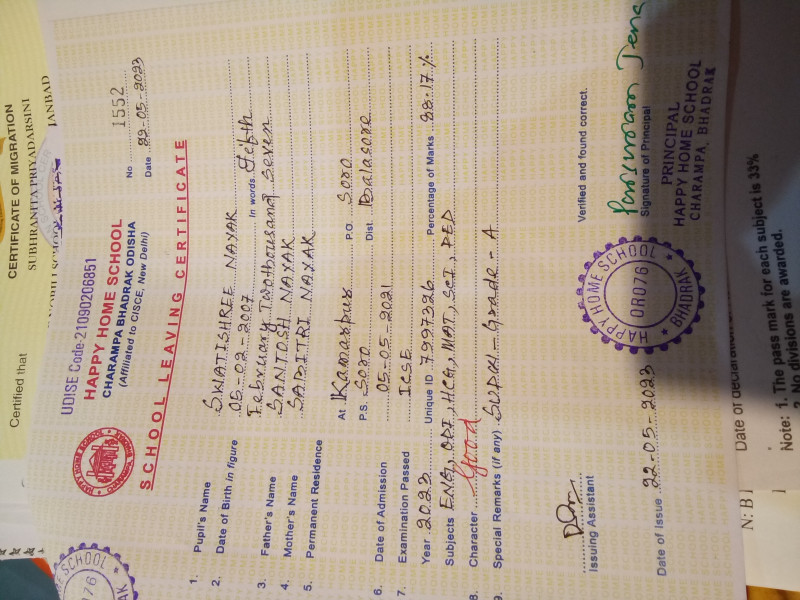 Certified that
CERTIFICATE OF MIGRATION
SUBHRANITA PRIYADARSINI
JANBAD
UDISE Code-21090206851
HAPPY HOME SCHOOL
CHARAMPA BHADRAK ODISHA
(Affiliated to CISCE, New Delhi)
No 1552
Date 22-05-2023
SCHOOL LEAVING CERTIFICATE
1. Pupil's Name SWATISHREE NAYAK
2. Date of Birth in figure 05-02-2007 In words Fifth
February Twothousand Seven
3. Father's Name SANTOSH NAYAK
4. Mother's Name SABITRI NAYAK
5. Permanent Residence
At Kamarpur P.O. Soro
P.S. Soro Dist. Balasore
6. Date of Admission 05-05-2021
7. Examination Passed ICSE
Year 2023 Unique ID 7997326 Percentage of Marks 88.17%
Subjects ENG, ODI, HCG, MAT, SCI, PED
8. Character Good
9. Special Remarks (if any) SUPW - Grade - A
Verified and found correct.
Issuing Assistant
Signature of Principal
PRINCIPAL
HAPPY HOME SCHOOL
CHARAMPA, BHADRAK
HAPPY HOME SCHOOL
OR076
BHADRAK
Date of Issue 22-05-2023
SCHOOL
076
Date of declaration
N: B1
Note: 1. The pass mark for each subject is 33%
2. No divisions are awarded.